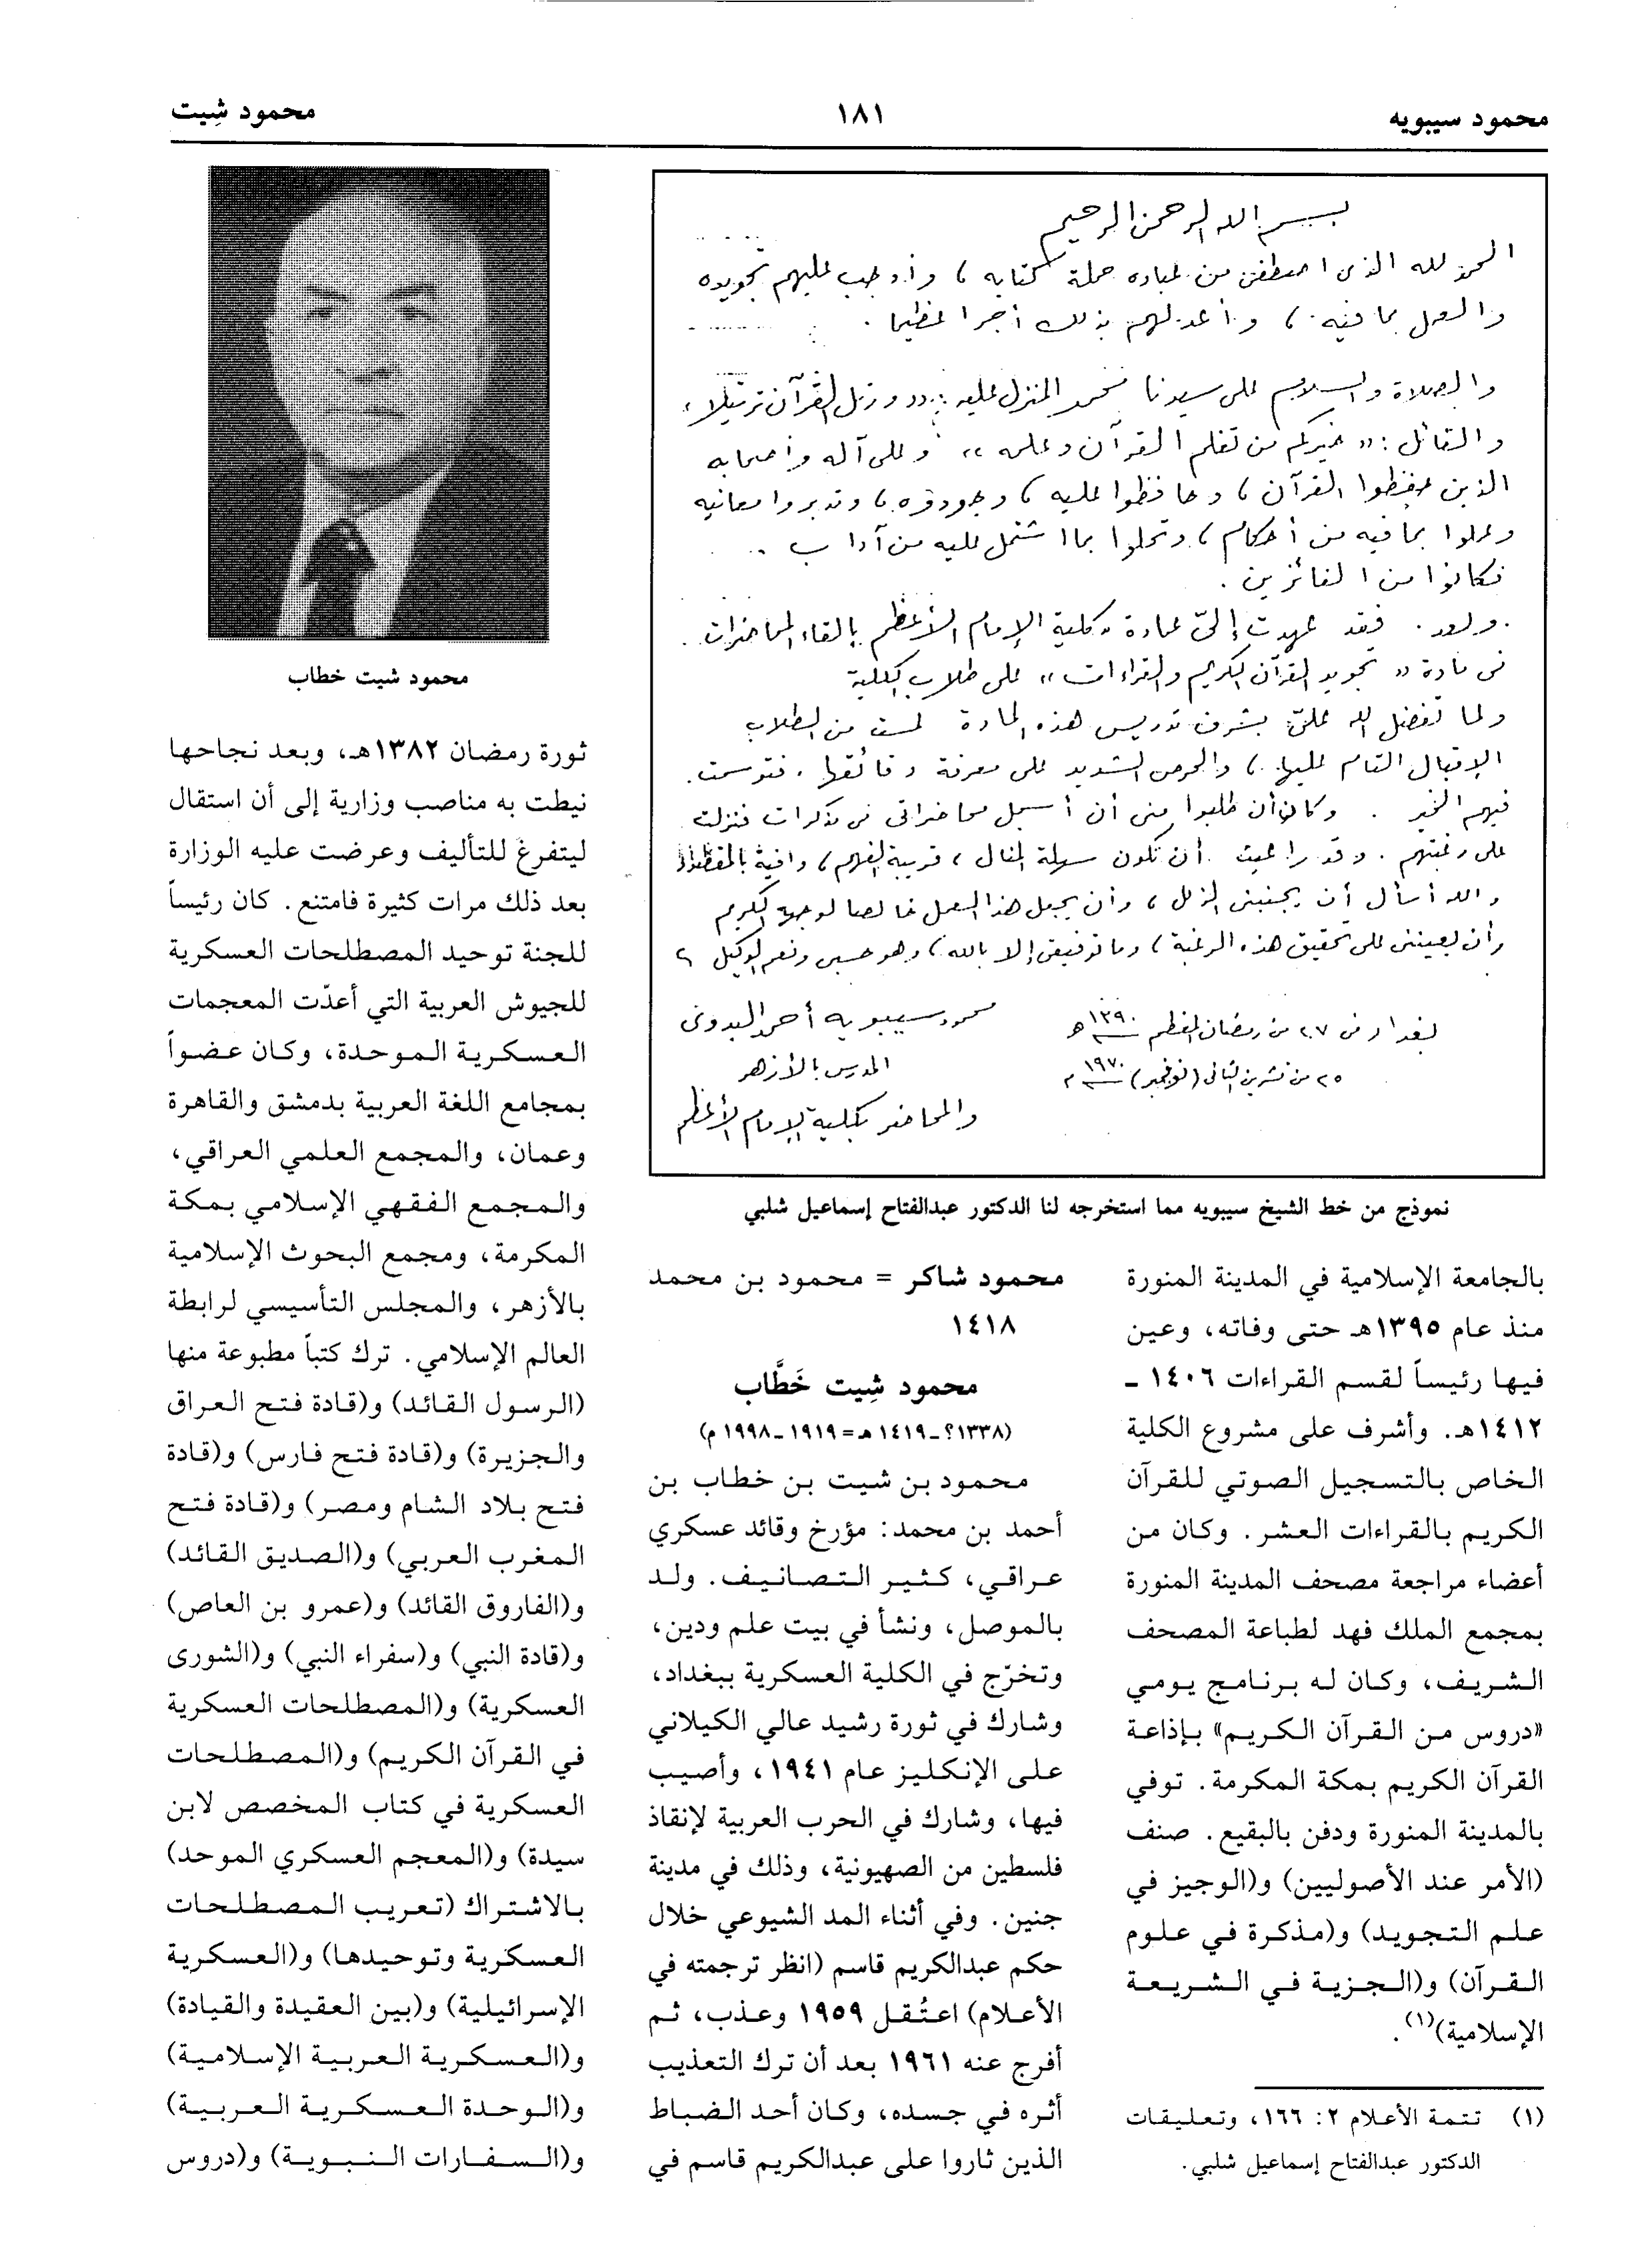 محمود سيبويه
١٨١
محمود شِيت
بسم الله الرحمن الرحيم
الحمد لله الذى اصطفى من عباده حملة كتابه ، وأوجب عليهم تجويده
والعمل بما فيه ، وأعد لهم بذلك أجرا عظيما .
والصلاة والسلام على سيدنا محمد المنزل عليه : « ورتل القرآن ترتيلا »
والقائل : « خيركم من تعلم القرآن وعلمه » وعلى آله وأصحابه
الذين حفظوا القرآن ، وحافظوا عليه ، وجودوه ، وتدبروا معانيه
وعملوا بما فيه من أحكام ، وتحلوا بما اشتمل عليه من آداب ..
فكانوا من الفائزين .
وبعد . فقد عهدت إلىّ عمادة كلية الإمام الأعظم بإلقاء المحاضرات
فى مادة « تجويد القرآن الكريم والقراءات » على طلاب الكلية
ولما تفضل الله علىّ بشرف تدريس هذه المادة لمست من الطلاب
الإقبال التام عليها ، والحرص الشديد على معرفة دقائقها . فتوسمت
فيهم الخير . وكان أن طلبوا منى أن أسجل محاضراتى فى مذكرات فنزلت
على رغبتهم . وقد راعيت أن تكون سهلة المنال ، قريبة الفهم ، وافية
والله أسأل أن يجنبنى الزلل ، وأن يجعل هذا العمل خالصا لوجهه الكريم
وأن يعيننى على تحقيق هذه الرغبة ، وما توفيقى إلا بالله ، وهو حسبى ونعم الوكيل
بغداد فى ٢٧ من رمضان المعظم ١٣٩٠ هـ
٢٥ من تشرين الثانى (نوفمبر) ١٩٧٠ م
محمود سيبويه أحمد البدوى
المدرس بالأزهر
والمحاضر بكلية الإمام الأعظم
نموذج من خط الشيخ سيبويه مما استخرجه لنا الدكتور عبدالفتاح إسماعيل شلبي
بالجامعة الإسلامية في المدينة المنورة
منذ عام ١٣٩٥هـ حتى وفاته، وعين
فيها رئيساً لقسم القراءات ١٤٠٦ ـ
١٤١٢هـ. وأشرف على مشروع الكلية
الخاص بالتسجيل الصوتي للقرآن
الكريم بالقراءات العشر. وكان من
أعضاء مراجعة مصحف المدينة المنورة
بمجمع الملك فهد لطباعة المصحف
الشريف، وكان له برنامج يومي
«دروس من القرآن الكريم» بإذاعة
القرآن الكريم بمكة المكرمة. توفي
بالمدينة المنورة ودفن بالبقيع. صنف
(الأمر عند الأصوليين) و(الوجيز في
علم التجويد) و(مذكرة في علوم
القرآن) و(الجزية في الشريعة
الإسلامية)(١).
(١) تتمة الأعلام ٢: ١٦٦، وتعليقات
الدكتور عبدالفتاح إسماعيل شلبي.
محمود شاكر = محمود بن محمد
١٤١٨
محمود شِيت خَطَّاب
(١٣٣٨؟ ـ ١٤١٩ هـ = ١٩١٩ ـ ١٩٩٨ م)
محمود بن شيت بن خطاب بن
أحمد بن محمد: مؤرخ وقائد عسكري
عراقي، كثير التصانيف. ولد
بالموصل، ونشأ في بيت علم ودين،
وتخرّج في الكلية العسكرية ببغداد،
وشارك في ثورة رشيد عالي الكيلاني
على الإنكليز عام ١٩٤١، وأصيب
فيها، وشارك في الحرب العربية لإنقاذ
فلسطين من الصهيونية، وذلك في مدينة
جنين. وفي أثناء المد الشيوعي خلال
حكم عبدالكريم قاسم (انظر ترجمته في
الأعلام) اعتُقل ١٩٥٩ وعذب، ثم
أفرج عنه ١٩٦١ بعد أن ترك التعذيب
أثره في جسده، وكان أحد الضباط
الذين ثاروا على عبدالكريم قاسم في
محمود شيت خطاب
ثورة رمضان ١٣٨٢هـ، وبعد نجاحها
نيطت به مناصب وزارية إلى أن استقال
ليتفرغ للتأليف وعرضت عليه الوزارة
بعد ذلك مرات كثيرة فامتنع. كان رئيساً
للجنة توحيد المصطلحات العسكرية
للجيوش العربية التي أعدّت المعجمات
العسكرية الموحدة، وكان عضواً
بمجامع اللغة العربية بدمشق والقاهرة
وعمان، والمجمع العلمي العراقي،
والمجمع الفقهي الإسلامي بمكة
المكرمة، ومجمع البحوث الإسلامية
بالأزهر، والمجلس التأسيسي لرابطة
العالم الإسلامي. ترك كتباً مطبوعة منها
(الرسول القائد) و(قادة فتح العراق
والجزيرة) و(قادة فتح فارس) و(قادة
فتح بلاد الشام ومصر) و(قادة فتح
المغرب العربي) و(الصديق القائد)
و(الفاروق القائد) و(عمرو بن العاص)
و(قادة النبي) و(سفراء النبي) و(الشورى
العسكرية) و(المصطلحات العسكرية
في القرآن الكريم) و(المصطلحات
العسكرية في كتاب المخصص لابن
سيدة) و(المعجم العسكري الموحد)
بالاشتراك (تعريب المصطلحات
العسكرية وتوحيدها) و(العسكرية
الإسرائيلية) و(بين العقيدة والقيادة)
و(العسكرية العربية الإسلامية)
و(الوحدة العسكرية العربية)
و(السفارات النبوية) و(دروس